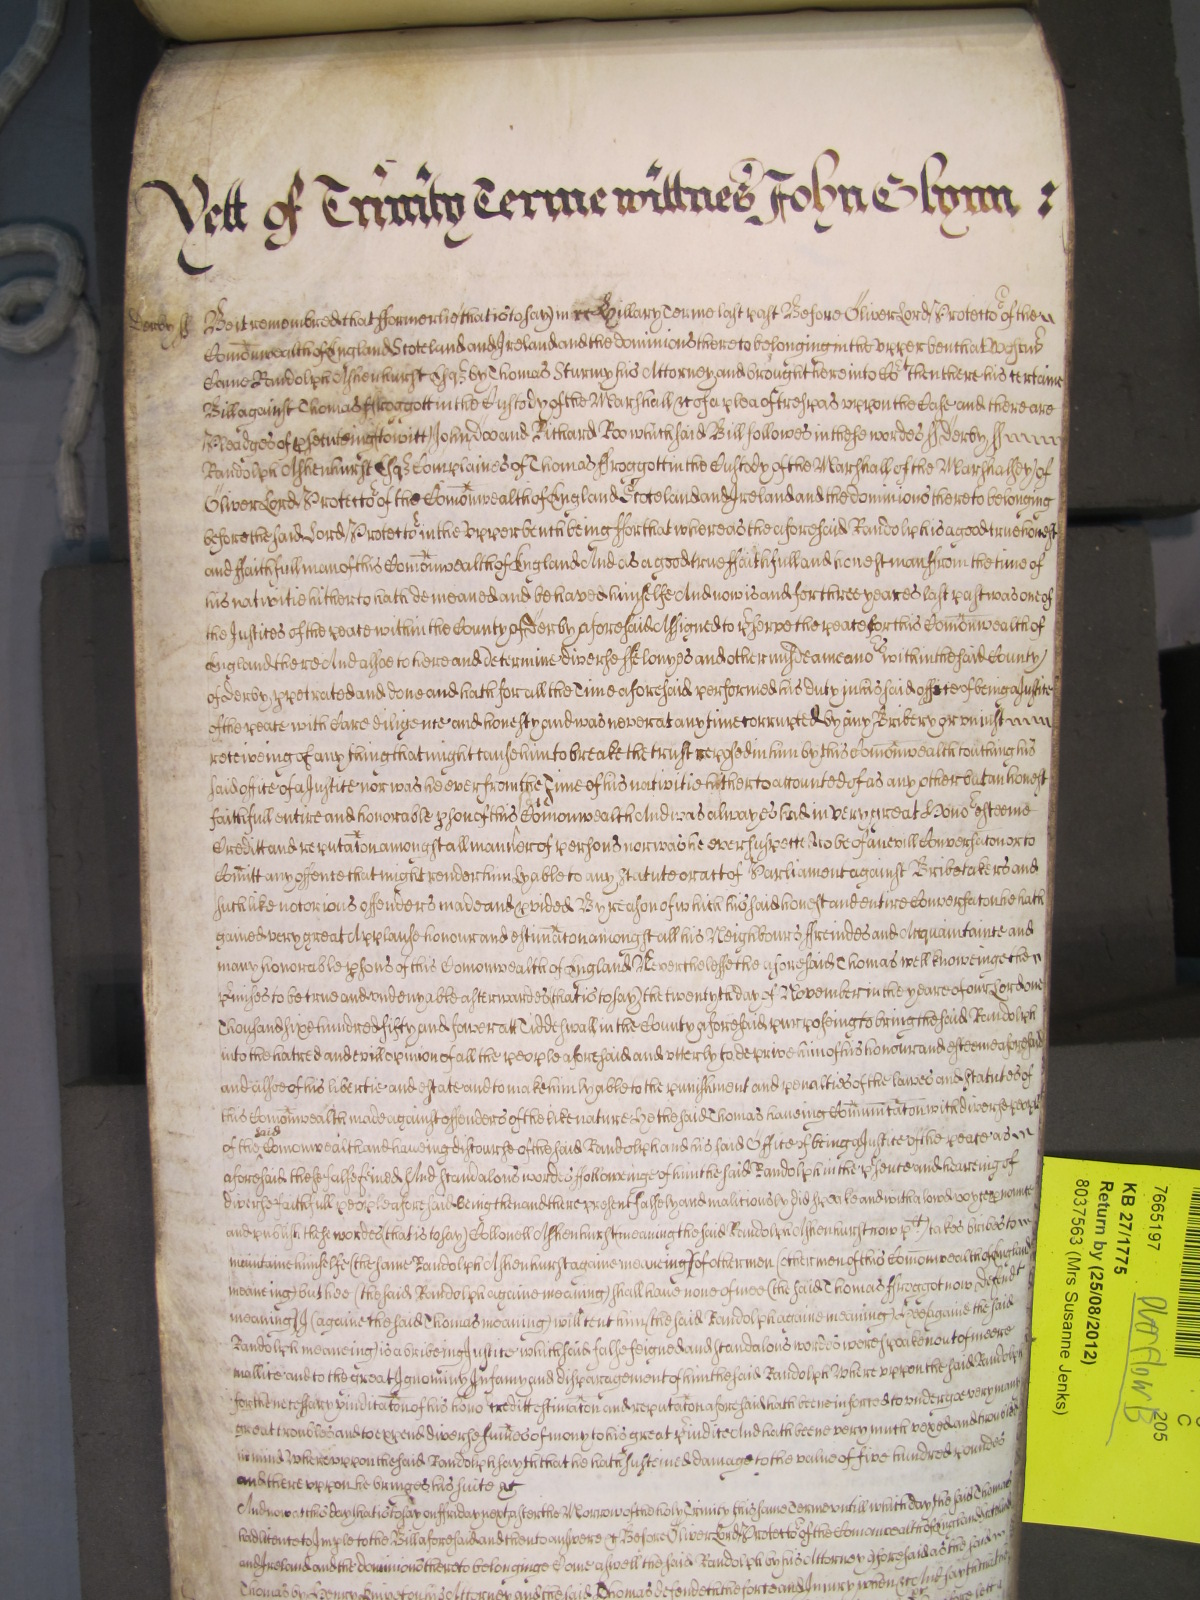 Yett of Trinity Terme wittnes John Glynn :
Derby ss Be it remembred that fformerlie that is to say in Hillary Terme last past Before Oliver Lord Protector of the
Comonwealth of England Scotland and Ireland and the dominions thereto belonging in the upper bench at Westmr
Came Randolph Ashenhurst Esqr by Thomas Sturmy his Attorney and brought here into Court then there his certaine
Bill against Thomas ffroggott in the Custody of the Marshall &c of a plea of trespas uppon the Case and there are
Pleadges of psecuteing to witt John doo and Richard Roo which said Bill followes in these wordes ss Derby ss
Randolph Ashenhurst Esqr Complaines of Thomas ffroggott in the Custody of the Marshall of the Marshallsey of
Oliver Lord Protector of the Comonwealth of England Scotland and Ireland and the dominions thereto belonging
before the said Lord Protector in the upper bench being ffor that whereas the aforesaid Randolph is a good true honest
and ffaithfull man of this Comonwealth of England And as a good true ffaithfull and honest man ffrom the time of
his nativitie hitherto hath demeaned and behaved himselfe And now is and for three yeares last past was one of
the Justices of the peace within the County of Derby aforesaid Assigned to pserve the peace for this Comonwealth of
England there And alsoe to heare and determine diverse ffelonyes and other misdemeanors within the said County
of Derby ppetrated and done and hath for all the Time aforesaid performed his duty in his said office of being a Justice
of the peace with Care diligence and honesty and was never at any time corrupted by any Bribery or unjust
receiveing of any thing that might cause him to breake the trust reposed in him by this Comonwealth touching his
said office of a Justice nor was he ever from the Time of his nativitie hitherto accounted of as any other but an honest
faithfull entire and honorable pson of this Comonwealth And was alwayes had in very great Honor esteeme
Creditt and reputacon amongst all manner of persons nor was he ever suspected to be of an evill Conversacon or to
Comitt any offence that might render him lyable to any Statute or act of Parliament against Bribe takers and
such like notorious offenders made and pvided By reason of which his said honest and entire Conversacon he hath
gained very great Applause honour and estimacon amongst all his Neighbours ffreindes and Acquaintance and
many honorable psons of this Comonwealth of England Neverthelesse the aforesaid Thomas well knoweinge the
pmises to be true and undenyable afterwardes (that is to say) the twentyth day of November in the yeare of our Lord one
Thousand sixe hundred fifty and fower att Tiddeswall in the County aforesaid purposeing to bring the said Randolph
into the hatred and evill opinion of all the people aforesaid and utterly to deprive him of his honour and esteeme aforesaid
and alsoe of his libertie and estate and to make him lyable to the punishment and penalties of the lawes and Statutes of
this Comonwealth made against offenders of the like nature He the said Thomas haveing Comunicacon with diverse people
of the said Comonwealth and haveing discourse of the said Randolph and his said Office of being a Justice of the peace as
aforesaid these false feined And scandalous wordes followeinge of him the said Randolph in the psence and heareing of
diverse faithfull people aforesaid being then and there present falsely and malitiously did speake and with a lowd voyce pnounce
and publish these wordes (that is to say) Collonell Ashenhurst (meaning the said Randolph Ashenhurst now plt) takes bribes to
maintaine himselfe (the same Randolph Ashenhurst againe meaning) of other men (other men of this Comonwealth of England
meaneing) but hee (the said Randolph againe meaning) shall have none of mee (the said Thomas ffroggot now Defendt
meaning) I (againe the said Thomas meaning) will tell him (the said Randolph againe meaning) hee (againe the said
Randolph meaneing) is a bribeing Justice which said false feigned and scandalous wordes were spoaken out of meere
mallice and to the great Ignominy Infamy and disparagement of him the said Randolph Whereuppon the said Randolph
for the necessary vindicacon of his honor creditt estimacon and reputacon aforesaid hath beene inforced to undergoe very many
great troubles and to expend diverse summes of mony to his great pjudice And hath beene very much vexed and troubled
in mind Whereuppon the said Randolph sayth that he hath susteined damage to the value of five hundred poundes
and thereuppon he bringes his suite &c
And now at this day that is to say on ffriday next after the Morrow of the holy Trinity this same Terme untill which day the said Thomas
had licence to Imple to the Bill aforesaid and then to answere &c Before Oliver Lord Protector of the Comonwealth of England Scotland
and Ireland and the dominions thereto belonginge Come aswell the said Randolph by his Attorney aforesaid as the said
Thomas by Henry his Attorney and the said Thomas defendeth the force and Injury when &c And sayth that
7665197
KB 27/1775
Return by (25/08/2012)
8037563 (Mrs Susanne Jenks)
Overflow B
205
C